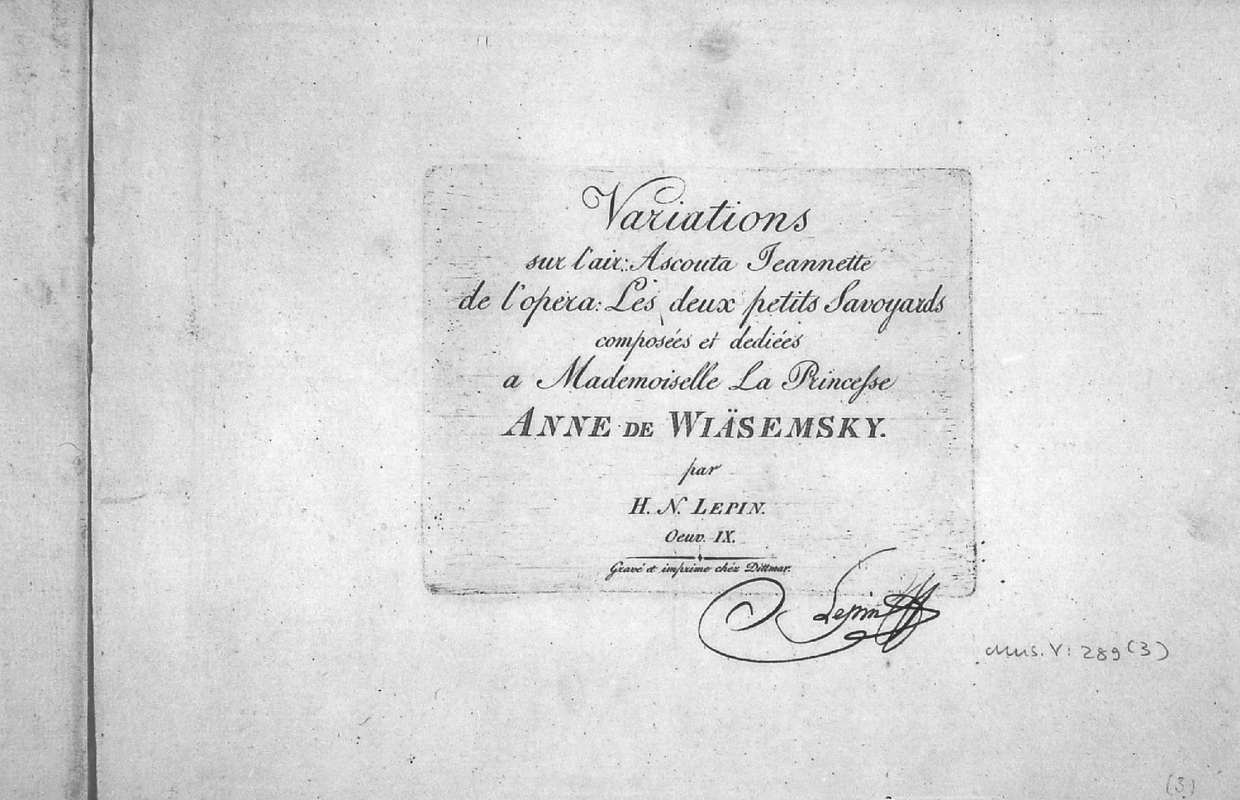 Variations
sur l'air: Ascouta Jeannette
de l'opera: Les deux petits Savoyards
composées et dediées
a Mademoiselle La Princesse
ANNE DE WIÄSEMSKY.
par
H. N. LEPIN.
Oeuv. IX.
Gravé et imprimé chez Dittmar.
Lepin
Mus. V: 289 (3)
(3)